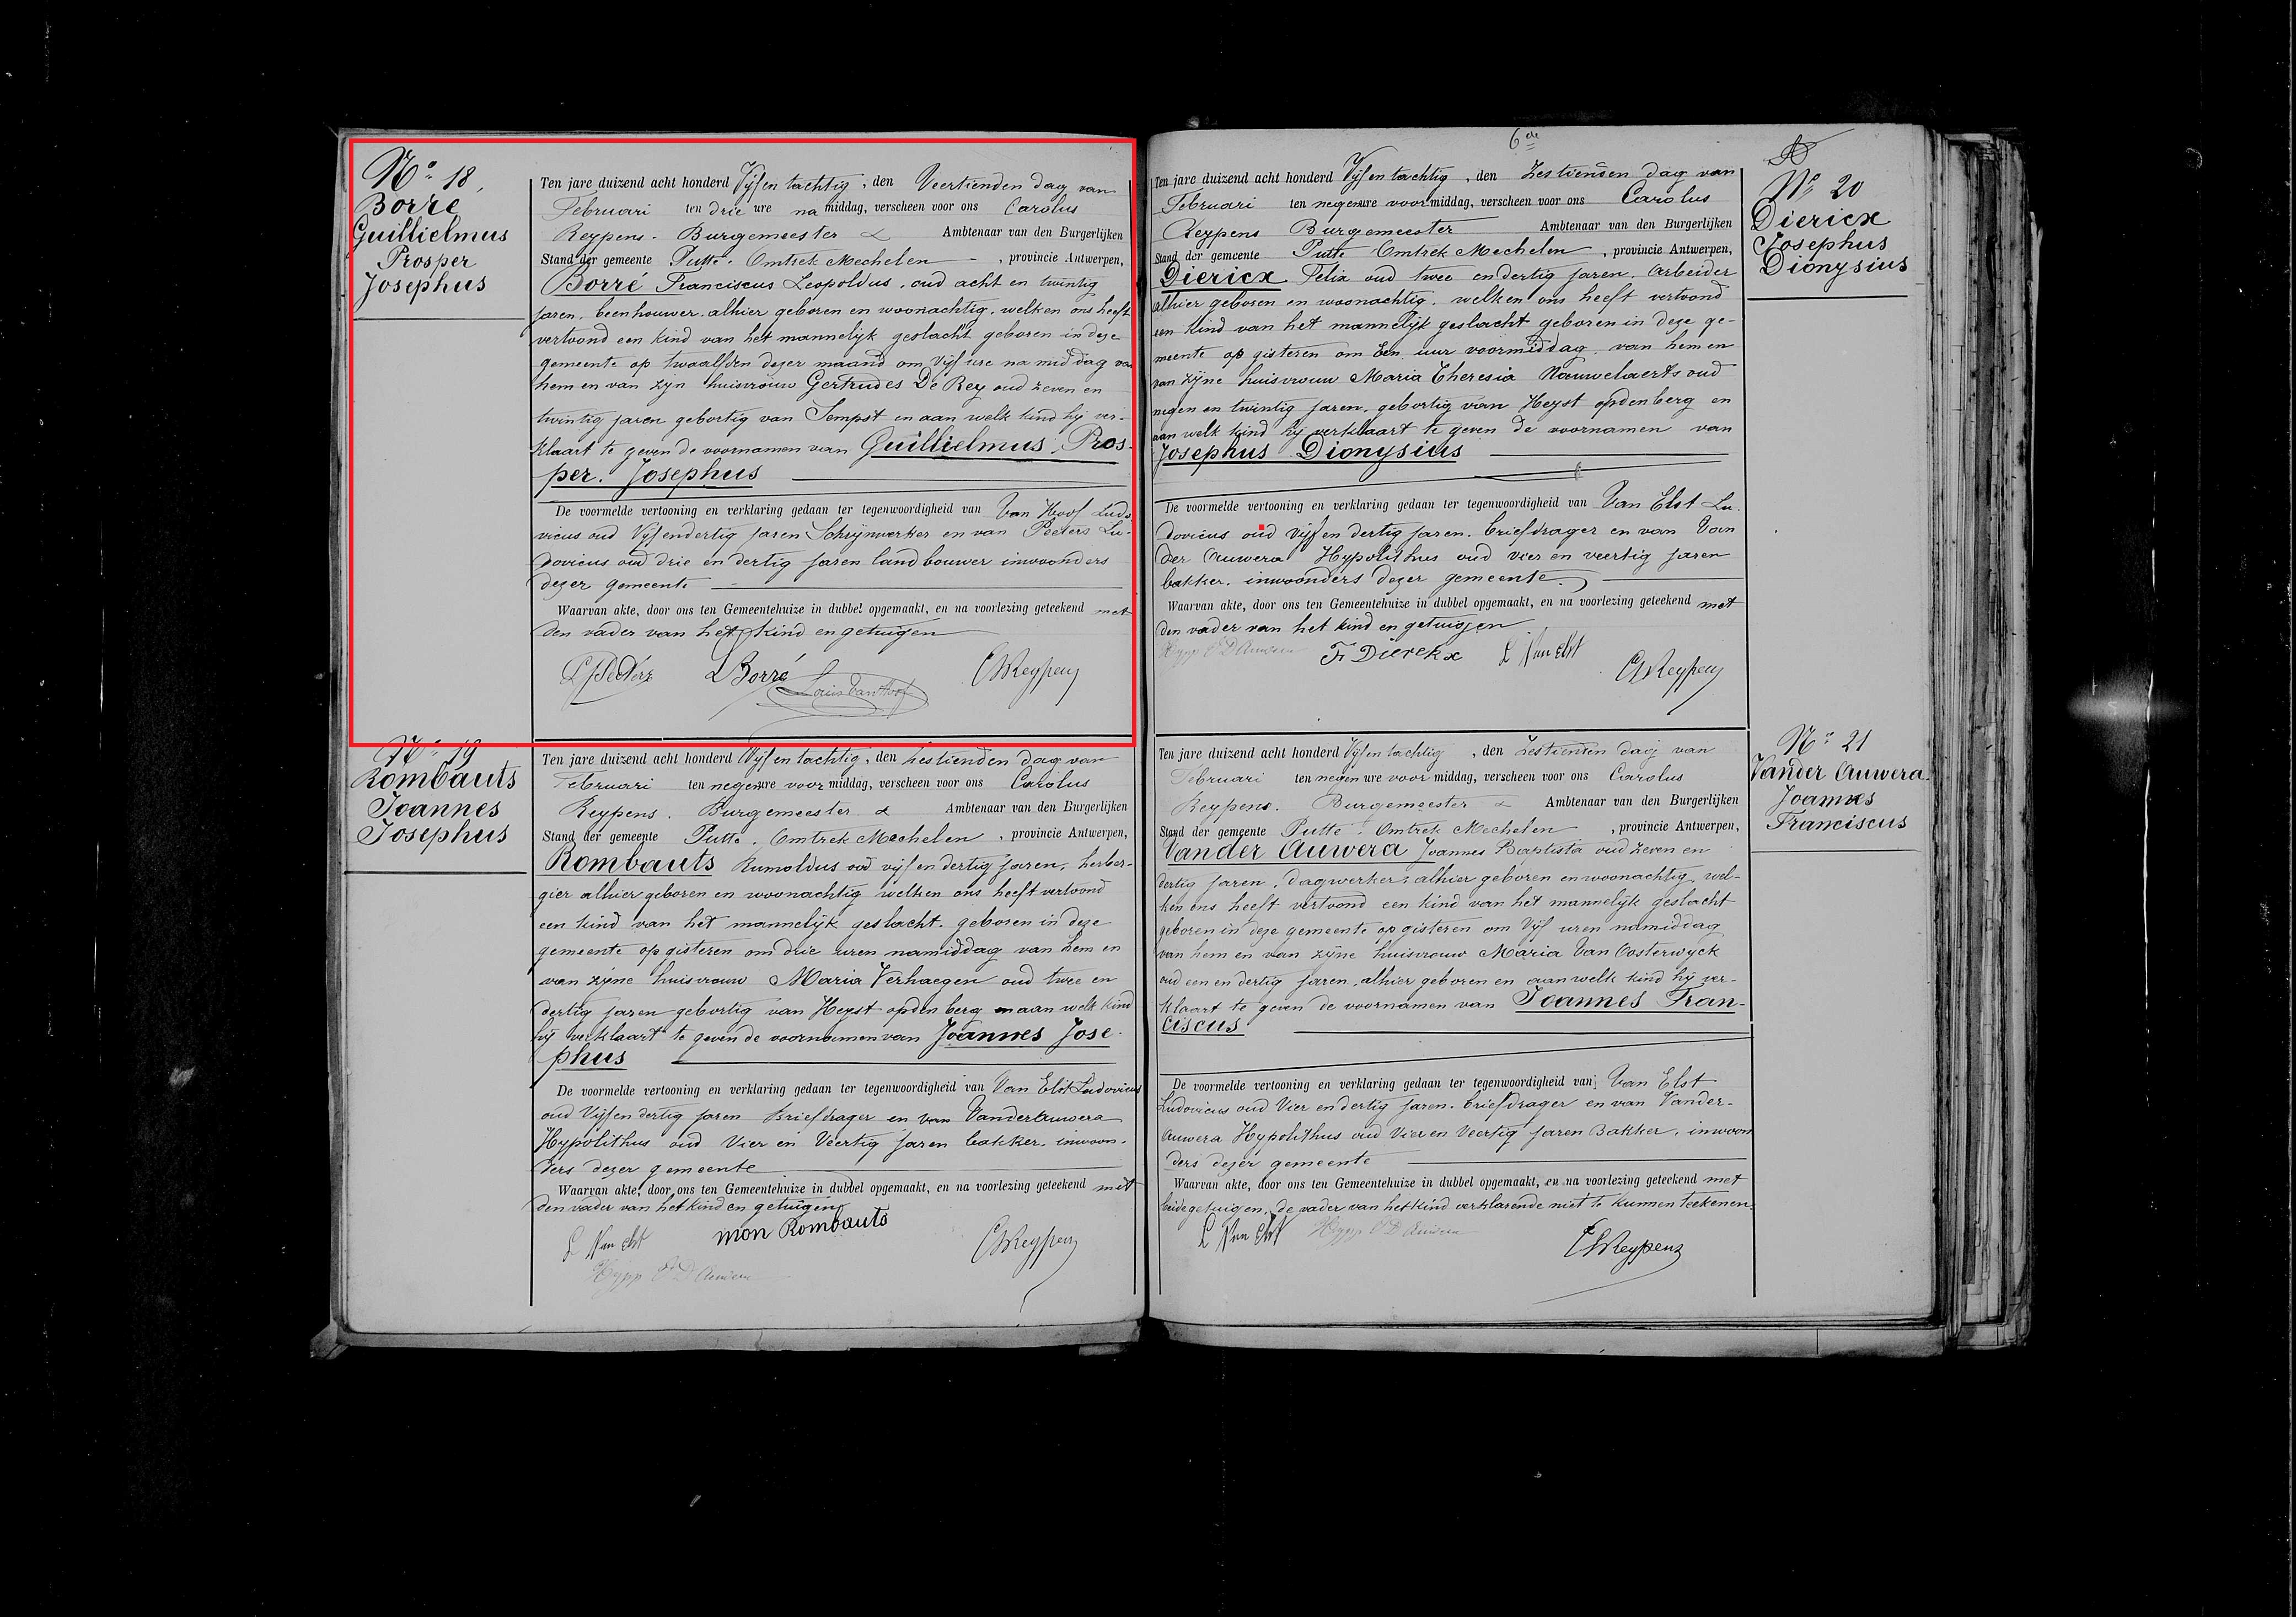 No 18
Borré
Guillielmus
Prosper
Josephus
Ten jare duizend acht honderd Vijf en tachtig, den Veertienden dag van
Februari ten drie ure na middag, verscheen voor ons Carolus
Reypens. Burgemeester Ambtenaar van den Burgerlijken
Stand der gemeente Putte. Omtrek Mechelen, provincie Antwerpen,
Borré Franciscus Leopoldus, oud acht en twintig
jaren, beenhouwer, alhier geboren en woonachtig, welken ons heeft
vertoond een kind van het mannelijk geslacht geboren in deze
gemeente op twaalfden dezer maand om Vijf ure na middag van
hem en van zyn huisvrouw Gertrudes De Rey oud zeven en
twintig jaren geboortig van Sempst en aan welk kind hij ver-
klaart te geven de voornamen van Guillielmus, Pros-
per. Josephus
De voormelde vertooning en verklaring gedaan ter tegenwoordigheid van Van Hoof Ludo
vicus oud Vijfendertig jaren Schrijnwerker en van Peeters Lu-
dovicus oud drie en dertig jaren landbouwer inwoonders
dezer gemeente
Waarvan akte, door ons ten Gemeentehuize in dubbel opgemaakt, en na voorlezing geteekend met
den vader van het kind en getuigen
L Peeters L Borré Louis Van Hoof C Reypens
No 19
Rombauts
Joannes
Josephus
Ten jare duizend acht honderd Vijf en tachtig, den Zestienden dag van
Februari ten negen ure voor middag, verscheen voor ons Carolus
Reypens. Burgemeester Ambtenaar van den Burgerlijken
Stand der gemeente Putte. Omtrek Mechelen, provincie Antwerpen,
Rombauts Rumoldus oud vijf en dertig jaren, herber-
gier alhier geboren en woonachtig welken ons heeft vertoond
een kind van het mannelijk geslacht. geboren in deze
gemeente op gisteren om drie uren namiddag van hem en
van zijne huisvrouw Maria Verhaegen oud twee en
dertig jaren geboortig van Heyst opden berg en aan welk kind
hij verklaart te geven de voornamen van Joannes Jose-
phus
De voormelde vertooning en verklaring gedaan ter tegenwoordigheid van Van Elst Ludovicus
oud Vijf en dertig jaren Briefdrager en van Vander Auwera
Hypolithus oud Vier en Veertig jaren bakker, inwoon-
ders dezer gemeente
Waarvan akte, door ons ten Gemeentehuize in dubbel opgemaakt, en na voorlezing geteekend met
den vader van het kind en getuigen
L Van Elst mon Rombauts C Reypens
Hypp V D Auwera
6de
No 20
Diericx
Josephus
Dionysius
Ten jare duizend acht honderd Vijf en tachtig, den Zestienden dag van
Februari ten negen ure voor middag, verscheen voor ons Carolus
Reypens Burgemeester Ambtenaar van den Burgerlijken
Stand der gemeente Putte Omtrek Mechelen, provincie Antwerpen,
Diericx Felix oud twee en dertig jaren. Arbeider
alhier geboren en woonachtig. welken ons heeft vertoond
een kind van het mannelijk geslacht geboren in deze ge-
meente op gisteren om Een uur voormiddag van hem en
van zijne huisvrouw Maria Theresia Nauwelaerts oud
negen en twintig jaren, geboortig van Heyst opdenberg en
aan welk kind hij verklaart te geven de voornamen van
Josephus Dionysius
De voormelde vertooning en verklaring gedaan ter tegenwoordigheid van Van Elst Lu-
dovicus oud Vijf en dertig jaren. briefdrager en van Van
der Auwera Hypolithus oud vier en veertig jaren
bakker. inwoonders dezer gemeente.
Waarvan akte, door ons ten Gemeentehuize in dubbel opgemaakt, en na voorlezing geteekend met
den vader van het kind en getuigen
Hypp V D Auwera Fr Dierckx L Van Elst C Reypens
No 21
Vander Auwera
Joannes
Franciscus
Ten jare duizend acht honderd Vijf en tachtig, den Zestienden dag van
Februari ten negen ure voor middag, verscheen voor ons Carolus
Reypens. Burgemeester Ambtenaar van den Burgerlijken
Stand der gemeente Putte. Omtrek Mechelen, provincie Antwerpen,
Vander Auwera Joannes Baptista oud zeven en
dertig jaren, dagwerker, alhier geboren en woonachtig, wel-
ken ons heeft vertoond een kind van het mannelijk geslacht
geboren in deze gemeente op gisteren om Vijf uren namiddag
van hem en van zijne huisvrouw Maria Van Oosterwyck
oud een en dertig jaren, alhier geboren en aan welk kind hij ver-
klaart te geven de voornamen van Joannes Fran-
ciscus
De voormelde vertooning en verklaring gedaan ter tegenwoordigheid van Van Elst
Ludovicus oud Vier en dertig jaren. briefdrager en van Vander-
Auwera Hypolithus oud Vier en Veertig jaren Bakker, inwoon
ders dezer gemeente
Waarvan akte, door ons ten Gemeentehuize in dubbel opgemaakt, en na voorlezing geteekend met
beide getuigen, de vader van het kind verklarende niet te kunnen teekenen.
L Van Elst Hypp V D Auwera C Reypens